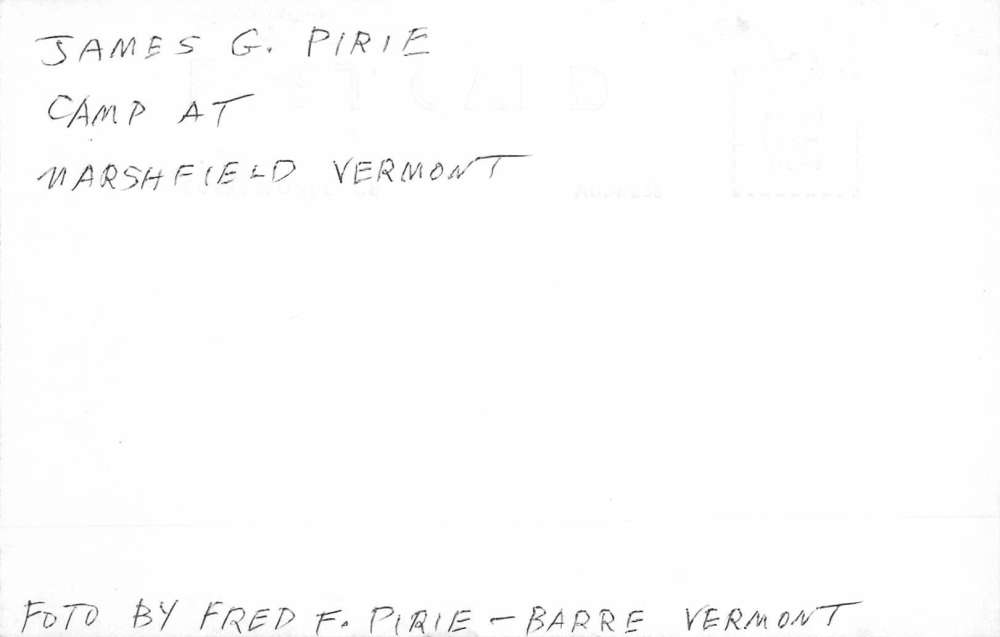 JAMES G. PIRIE
CAMP AT
MARSHFIELD VERMONT
FOTO BY FRED F. PIRIE - BARRE VERMONT